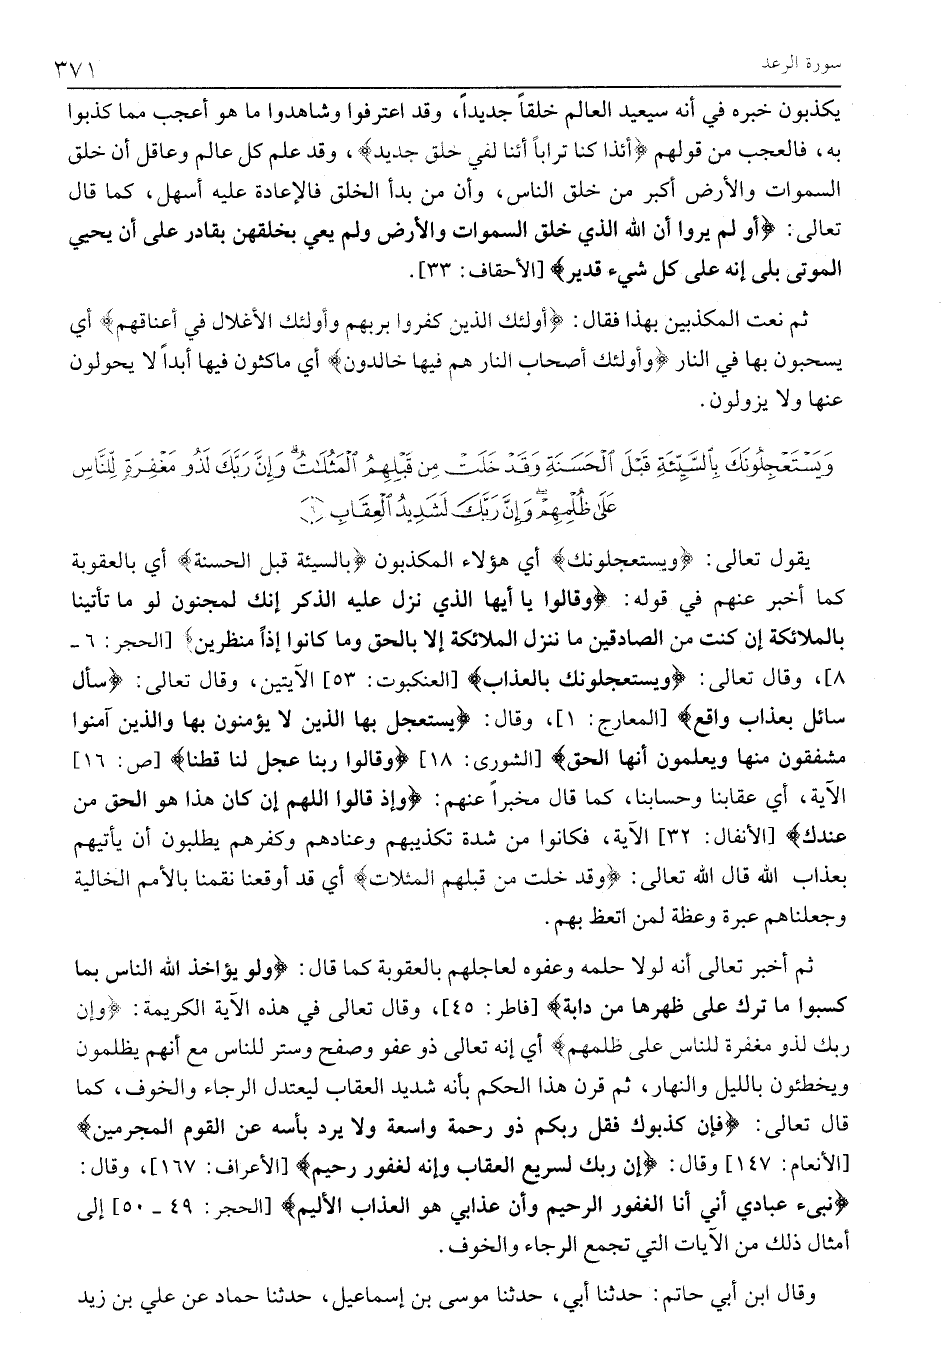 سورة الرعد ٣٧١
يكذبون خبره في أنه سيعيد العالم خلقاً جديداً، وقد اعترفوا وشاهدوا ما هو أعجب مما كذبوا
به، فالعجب من قولهم ﴿أئذا كنا تراباً أئنا لفي خلق جديد﴾، وقد علم كل عالم وعاقل أن خلق
السموات والأرض أكبر من خلق الناس، وأن من بدأ الخلق فالإعادة عليه أسهل، كما قال
تعالى: ﴿أو لم يروا أن الله الذي خلق السموات والأرض ولم يعي بخلقهن بقادر على أن يحيي
الموتى بلى إنه على كل شيء قدير﴾ [الأحقاف: ٣٣].
ثم نعت المكذبين بهذا فقال: ﴿أولئك الذين كفروا بربهم وأولئك الأغلال في أعناقهم﴾ أي
يسحبون بها في النار ﴿وأولئك أصحاب النار هم فيها خالدون﴾ أي ماكثون فيها أبداً لا يحولون
عنها ولا يزولون.
وَيَسْتَعْجِلُونَكَ بِالسَّيِّئَةِ قَبْلَ الْحَسَنَةِ وَقَدْ خَلَتْ مِن قَبْلِهِمُ الْمَثُلَاتُ ۗ وَإِنَّ رَبَّكَ لَذُو مَغْفِرَةٍ لِّلنَّاسِ
عَلَىٰ ظُلْمِهِمْ ۖ وَإِنَّ رَبَّكَ لَشَدِيدُ الْعِقَابِ ﴿٦﴾
يقول تعالى: ﴿ويستعجلونك﴾ أي هؤلاء المكذبون ﴿بالسيئة قبل الحسنة﴾ أي بالعقوبة
كما أخبر عنهم في قوله: ﴿وقالوا يا أيها الذي نزل عليه الذكر إنك لمجنون لو ما تأتينا
بالملائكة إن كنت من الصادقين ما ننزل الملائكة إلا بالحق وما كانوا إذاً منظرين﴾ [الحجر: ٦ ـ
٨]، وقال تعالى: ﴿ويستعجلونك بالعذاب﴾ [العنكبوت: ٥٣] الآيتين، وقال تعالى: ﴿سأل
سائل بعذاب واقع﴾ [المعارج: ١]، وقال: ﴿يستعجل بها الذين لا يؤمنون بها والذين آمنوا
مشفقون منها ويعلمون أنها الحق﴾ [الشورى: ١٨] ﴿وقالوا ربنا عجل لنا قطنا﴾ [ص: ١٦]
الآية، أي عقابنا وحسابنا، كما قال مخبراً عنهم: ﴿وإذ قالوا اللهم إن كان هذا هو الحق من
عندك﴾ [الأنفال: ٣٢] الآية، فكانوا من شدة تكذيبهم وعنادهم وكفرهم يطلبون أن يأتيهم
بعذاب الله قال الله تعالى: ﴿وقد خلت من قبلهم المثلات﴾ أي قد أوقعنا نقمنا بالأمم الخالية
وجعلناهم عبرة وعظة لمن اتعظ بهم.
ثم أخبر تعالى أنه لولا حلمه وعفوه لعاجلهم بالعقوبة كما قال: ﴿ولو يؤاخذ الله الناس بما
كسبوا ما ترك على ظهرها من دابة﴾ [فاطر: ٤٥]، وقال تعالى في هذه الآية الكريمة: ﴿وإن
ربك لذو مغفرة للناس على ظلمهم﴾ أي إنه تعالى ذو عفو وصفح وستر للناس مع أنهم يظلمون
ويخطئون بالليل والنهار، ثم قرن هذا الحكم بأنه شديد العقاب ليعتدل الرجاء والخوف، كما
قال تعالى: ﴿فإن كذبوك فقل ربكم ذو رحمة واسعة ولا يرد بأسه عن القوم المجرمين﴾
[الأنعام: ١٤٧] وقال: ﴿إن ربك لسريع العقاب وإنه لغفور رحيم﴾ [الأعراف: ١٦٧]، وقال:
﴿نبىء عبادي أني أنا الغفور الرحيم وأن عذابي هو العذاب الأليم﴾ [الحجر: ٤٩ ـ ٥٠] إلى
أمثال ذلك من الآيات التي تجمع الرجاء والخوف.
وقال ابن أبي حاتم: حدثنا أبي، حدثنا موسى بن إسماعيل، حدثنا حماد عن علي بن زيد